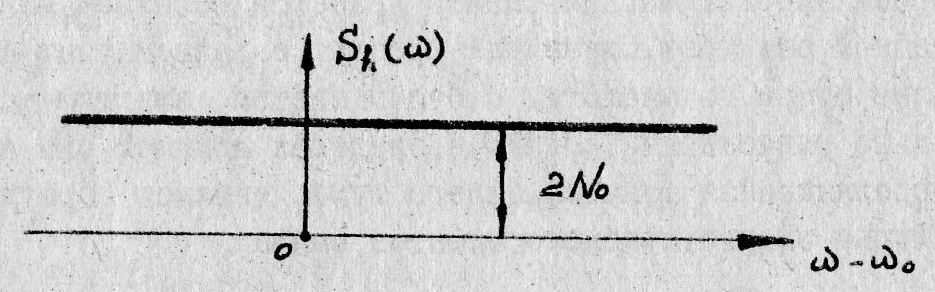 S_{f_i}(ω)
2N₀
0
ω - ω₀